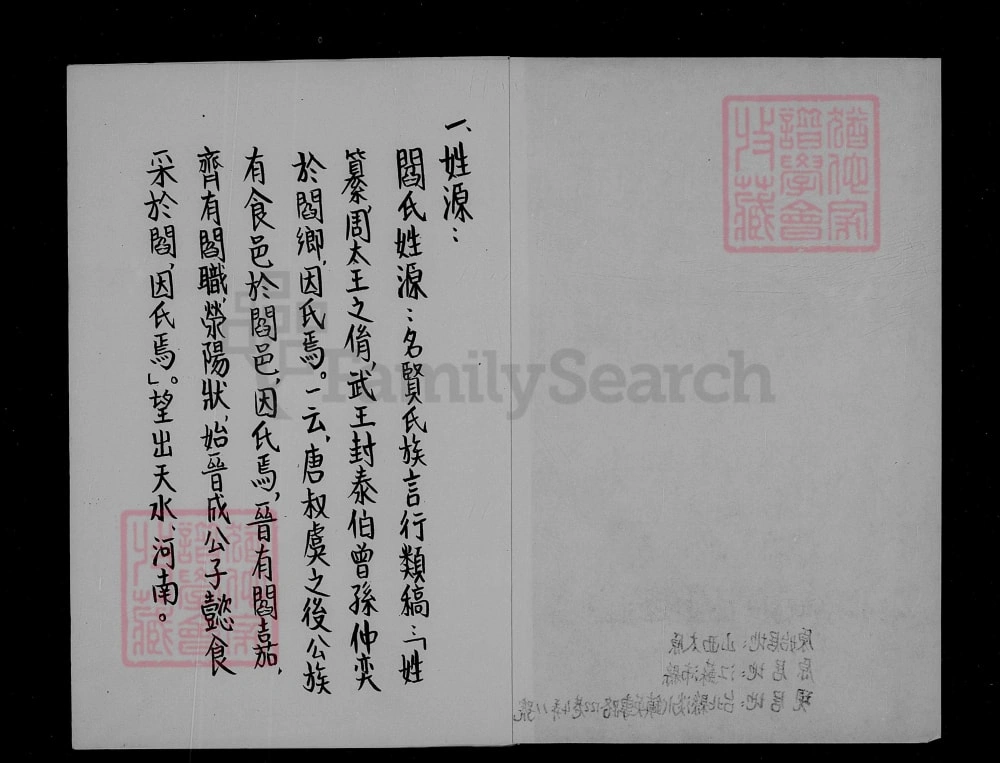 一、姓源：
閻氏姓源：名賢氏族言行類稿：「姓
纂，周太王之俏，武王封泰伯曾孫仲奕
於閻鄉，因氏焉。一云，唐叔虞之後公族
有食邑於閻邑，因氏焉，晉有閻嘉，
齊有閻職，滎陽狀，始晉成公子懿食
采於閻，因氏焉」。望出天水、河南。
原始居地：山西太原
原居地：江蘇沛縣
現居地：台北縣淡水鎮
譜學會
收藏
FamilySearch